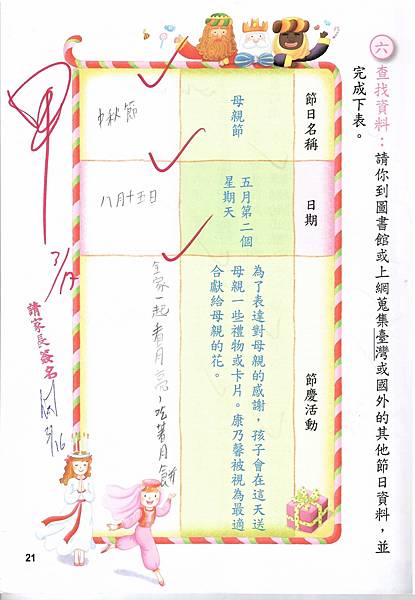 六 查找資料：請你到圖書館或上網蒐集臺灣或國外的其他節日資料，並
完成下表。
節日名稱
日期
節慶活動
母親節
五月第二個
星期天
為了表達對母親的感謝，孩子會在這天送
母親一些禮物或卡片。康乃馨被視為最適
合獻給母親的花。
中秋節
八月十五日
全家一起看月亮，吃著月餅
請家長簽名
21